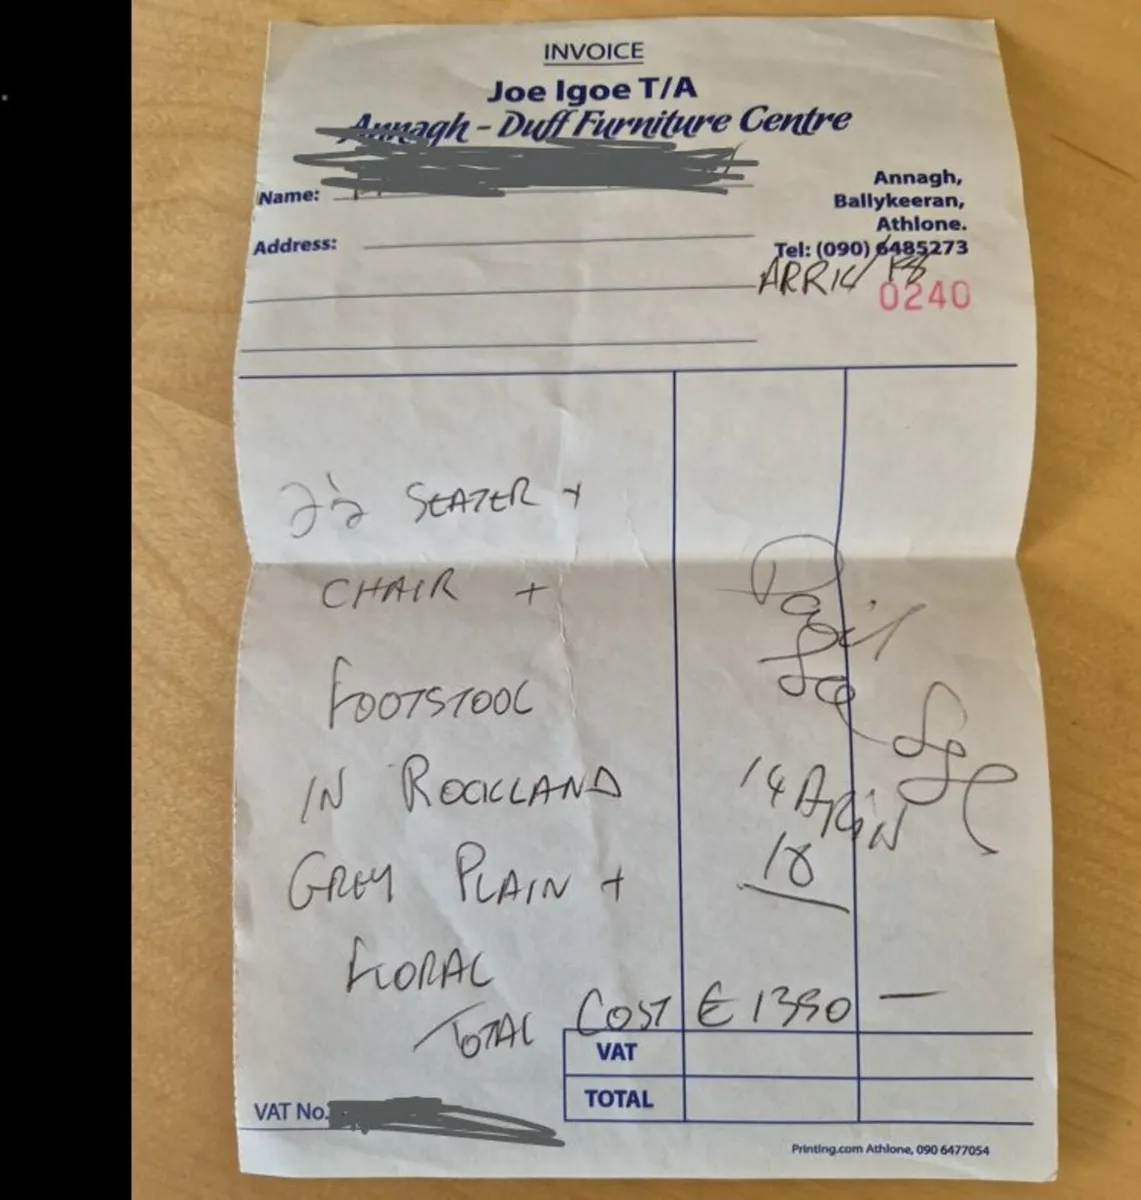 INVOICE
Joe Igoe T/A
Annagh - Duff Furniture Centre
Name:
Annagh,
Ballykeeran,
Athlone.
Address:
Tel: (090) 6485273
18
0240
SEATER +
CHAIR +
FOOTSTOOL
IN ROCKLAND
GREY PLAIN +
FLORAL
Paid
14 APRIL
18
TOTAL COST € 1390 —
VAT
TOTAL
VAT No.
Printing.com Athlone, 090 6477054